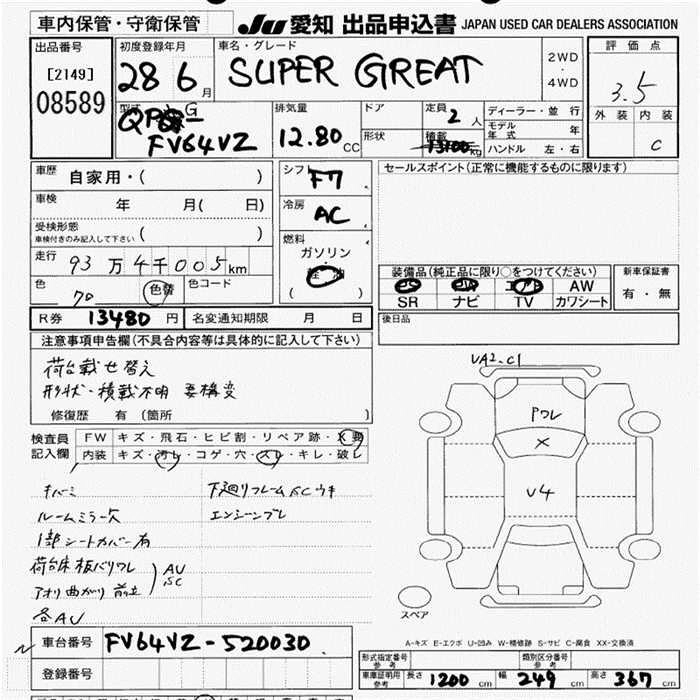 車内保管・守衛保管
JU 愛知 出品申込書 JAPAN USED CAR DEALERS ASSOCIATION
出品番号
[2149]
08589
初度登録年月
28 6月
車名・グレード
SUPER GREAT
2WD
・
4WD
評価点
3.5
外装 内装
C
型式
QPG-
FV64VZ
排気量
12.80 CC
ドア
形状
定員
2 人
積載
13100 kg
ディーラー・並行
モデル年式 年
ハンドル 左・右
車歴
自家用・( )
車検 年 月( 日)
受検形態
車検付きのみ記入して下さい ( )
走行 93万4千005km
色 70 色替 色コード
シフト
F7
冷房
AC
燃料
ガソリン
軽油
( )
セールスポイント(正常に機能するものに限ります)
装備品(純正品に限り○をつけてください)
AW
SR ナビ TV カワシート
新車保証書
有・無
R券 13480 円 名変通知期限 月 日
後日品
注意事項申告欄(不具合内容等は具体的に記入して下さい)
荷台載せ替え
形状・積載不明 要構変
修復歴 有 (箇所 )
検査員
記入欄
FW キズ・飛石・ヒビ割・リペア跡・X要
内装 キズ・汚レ・コゲ・穴・スレ・キレ・破レ
キバミ
ルームミラー欠
1部シートカバー有
荷台床板バリワレ
アオリ曲がり
AU
SC
各AU
下廻りフレームSCウキ
エンジンブレ
VA2.C1
Pワレ
X
V4
スペア
A-キズ E-エクボ U-凹み W-補修跡 S-サビ C-腐食 XX-交換済
車台番号 FV64VZ-520030
登録番号
形式指定番号
参考
類別区分番号
参考
車庫証明用
参考
長さ 1200 cm 幅 249 cm 高さ 367 cm